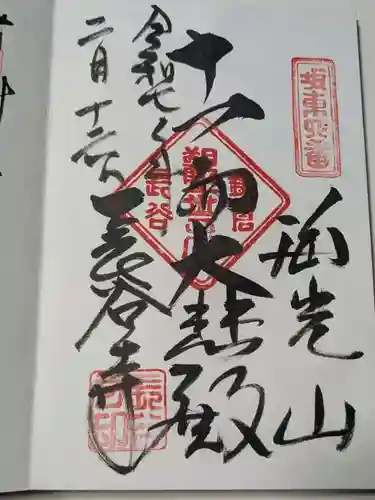 坂東四番
海光山
十一面大悲殿
鎌倉
長谷
令和七年
二月十六日
長谷寺